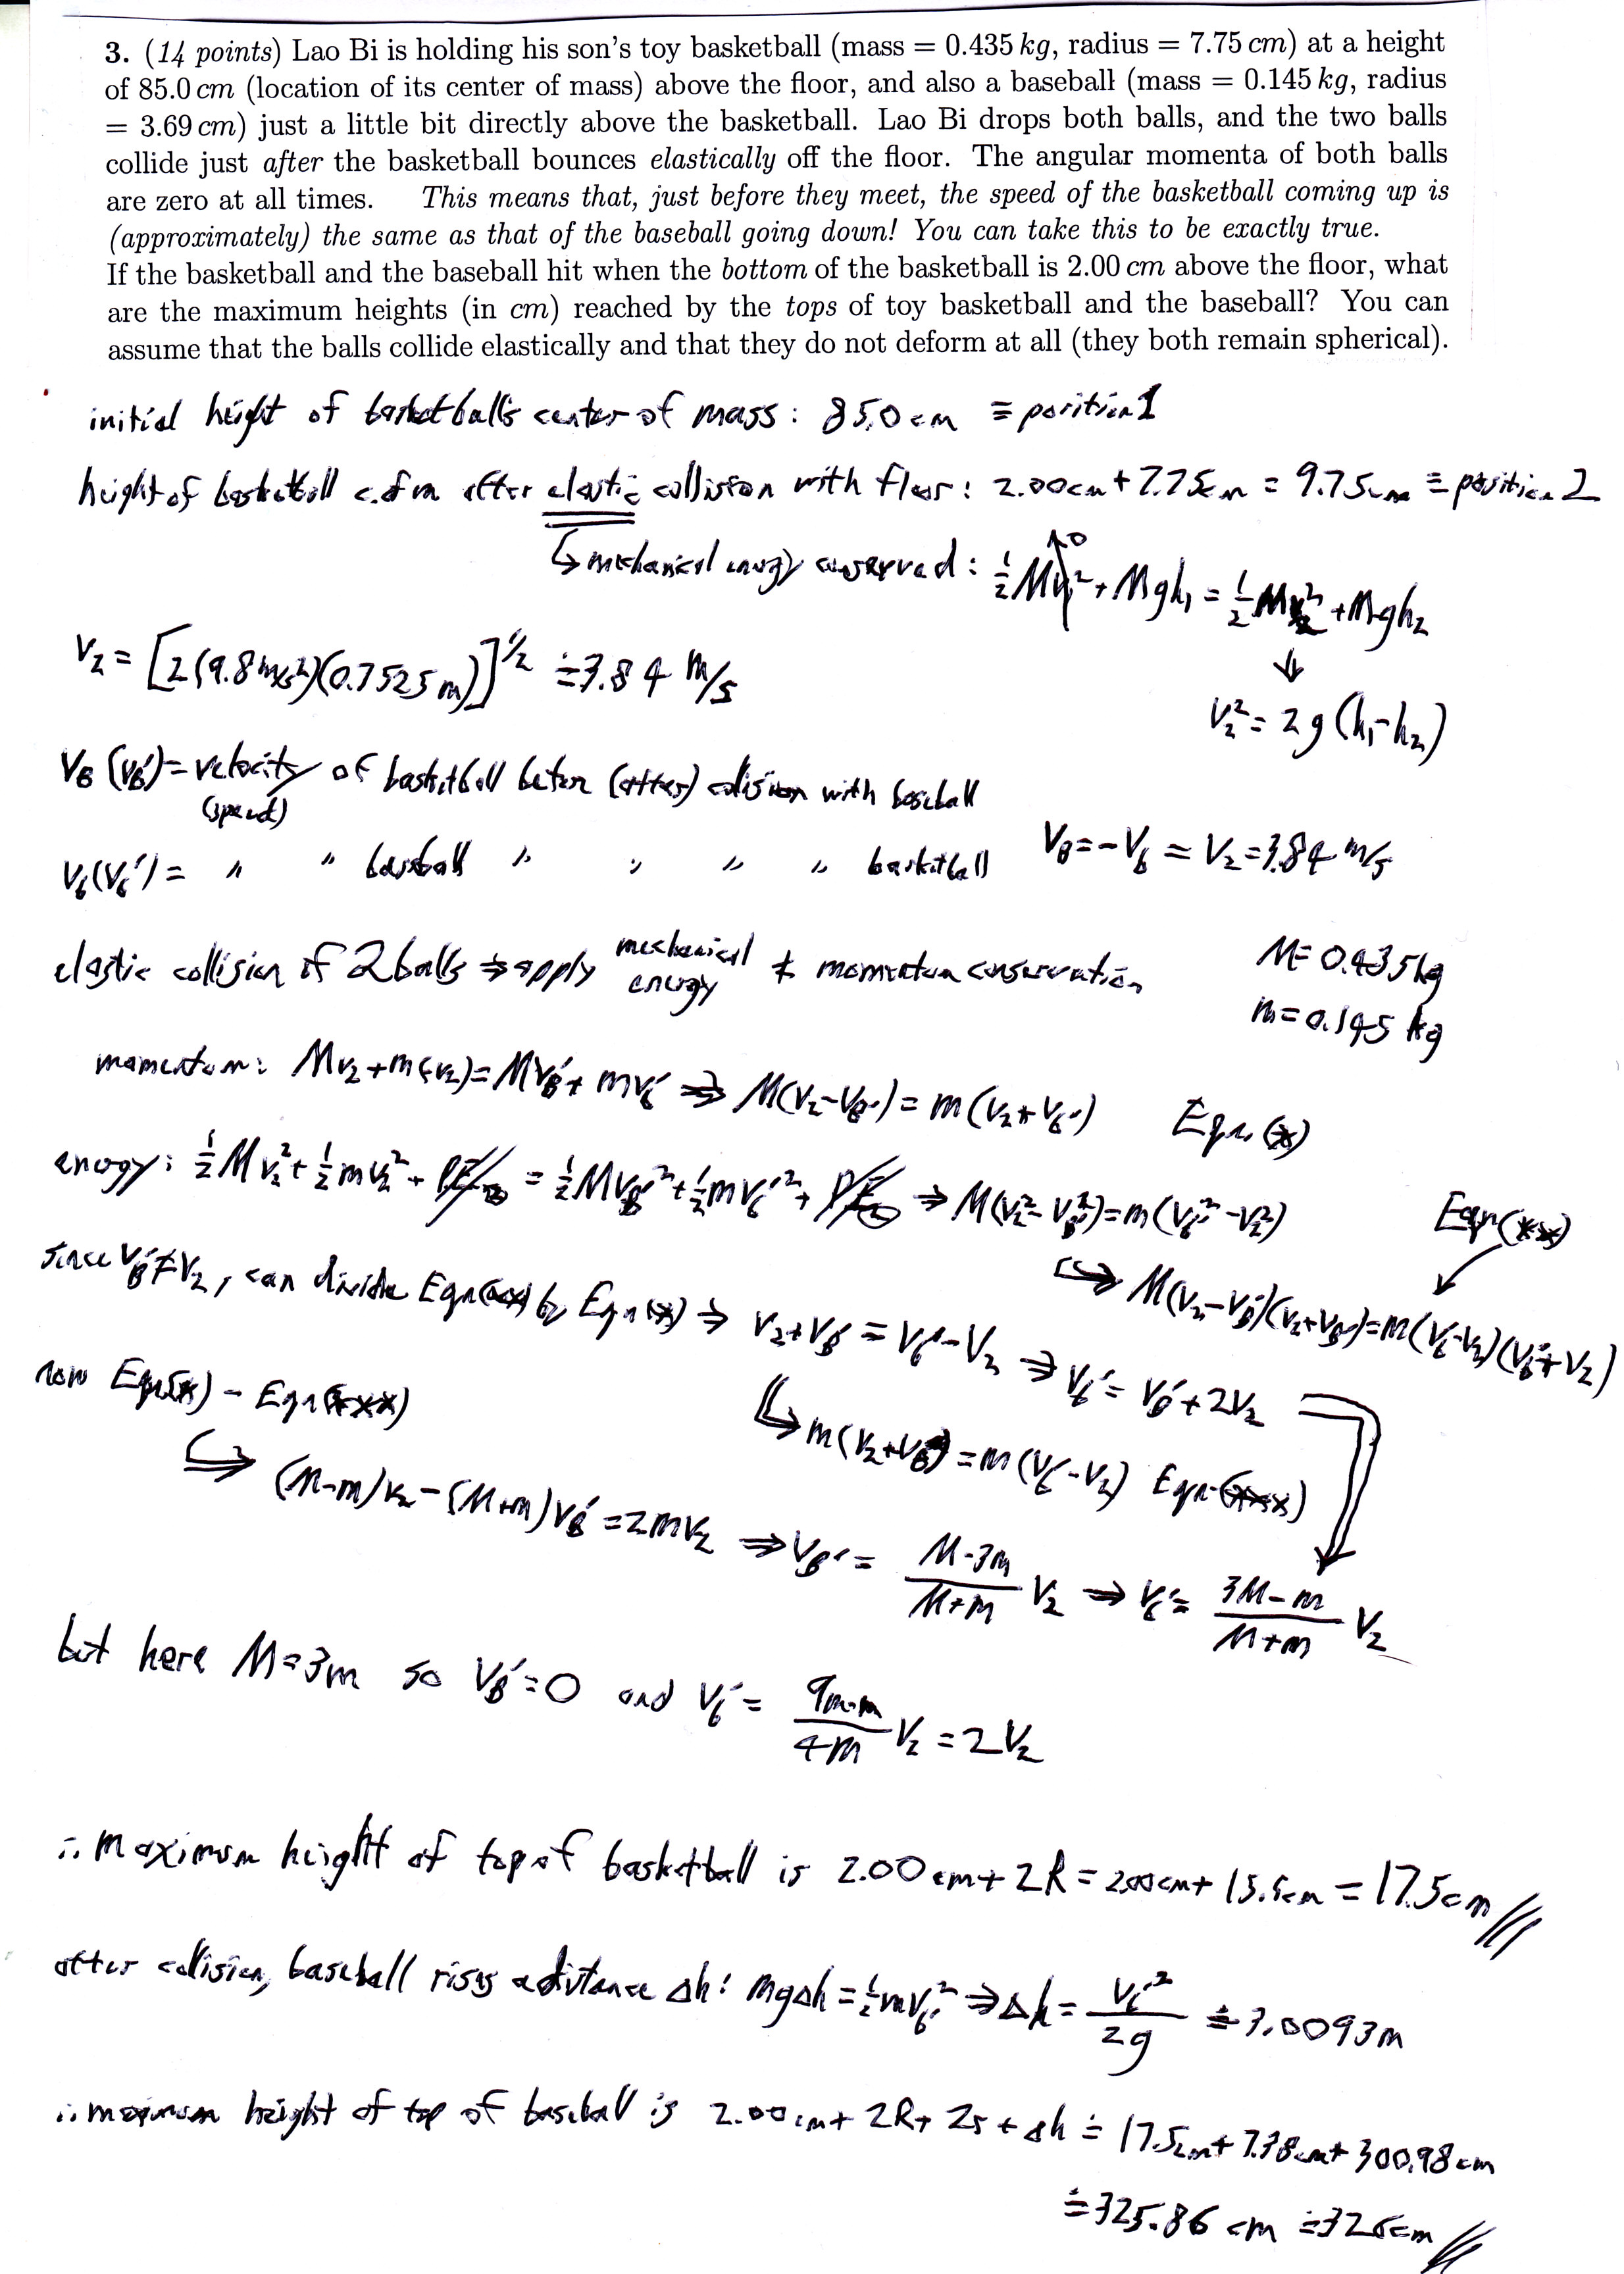 3. (14 points) Lao Bi is holding his son's toy basketball (mass = 0.435 kg, radius = 7.75 cm) at a height
of 85.0 cm (location of its center of mass) above the floor, and also a baseball (mass = 0.145 kg, radius
= 3.69 cm) just a little bit directly above the basketball. Lao Bi drops both balls, and the two balls
collide just after the basketball bounces elastically off the floor. The angular momenta of both balls
are zero at all times. This means that, just before they meet, the speed of the basketball coming up is
(approximately) the same as that of the baseball going down! You can take this to be exactly true.
If the basketball and the baseball hit when the bottom of the basketball is 2.00 cm above the floor, what
are the maximum heights (in cm) reached by the tops of toy basketball and the baseball? You can
assume that the balls collide elastically and that they do not deform at all (they both remain spherical).
initial height of basketball's center of mass: 85.0 cm ≡ position 1
height of basketball c.of m after elastic collision with floor: 2.00cm + 7.75cm = 9.75cm ≡ position 2
↳ mechanical energy conserved: ½Mv₁²↗0 + Mgh₁ = ½Mv₂² + Mgh₂
⇓
v₂ = [2(9.8 m/s²)(0.7525 m)]^{1/2} ≐ 3.84 m/s
v₂² = 2g(h₁-h₂)
V_B (V_B') = velocity of basketball before (after) collision with baseball
(speed)
V_b (V_b') = " " baseball " " " " basketball V_B = -V_b = V₂ = 3.84 m/s
elastic collision of 2 balls ⇒ apply mechanical energy & momentum conservation
M = 0.435 kg
m = 0.145 kg
momentum: Mv₂ + m(-v₂) = MV_B' + mv_b' ⇒ M(V₂-V_B') = m(V₂+V_b') Eqn. (*)
energy: ½Mv₂² + ½mv₂² + PE₀ = ½MV_B'² + ½mv_b'² + PE₀ ⇒ M(V₂²-V_B'²) = m(V_b'²-V₂²)
Eqn (**)
↪ M(V₂-V_B')(V₂+V_B') = m(V_b'-V₂)(V_b'+V₂)
since V_B' ≠ V₂, can divide Eqn(**) by Eqn(*) ⇒ V₂+V_B' = V_b'-V₂ ⇒ V_b' = V_B'+2V₂
↳ m(V₂+V_B') = m(V_b'-V₂) Eqn.(***)
now Eqn(*) - Eqn(***)
↪ (M-m)V₂-(M+m)V_B' = 2mV₂ ⇒ V_B' = \frac{M-3m}{M+m} V₂ ⇒ V_b' = \frac{3M-m}{M+m} V₂
but here M=3m so V_B'=0 and V_b' = \frac{9m-m}{4m} V₂ = 2V₂
∴ maximum height of top of basketball is 2.00 cm + 2R = 2.00cm + 15.5cm = 17.5cm
after collision, baseball rises a distance Δh: mgΔh = ½mv_b'² ⇒ Δh = \frac{V_b'²}{2g} ≐ 3.0093m
∴ maximum height of top of baseball is 2.00cm + 2R + 2r + Δh ≐ 17.5cm + 7.38cm + 300.98cm
≐ 325.86 cm ≐ 326cm